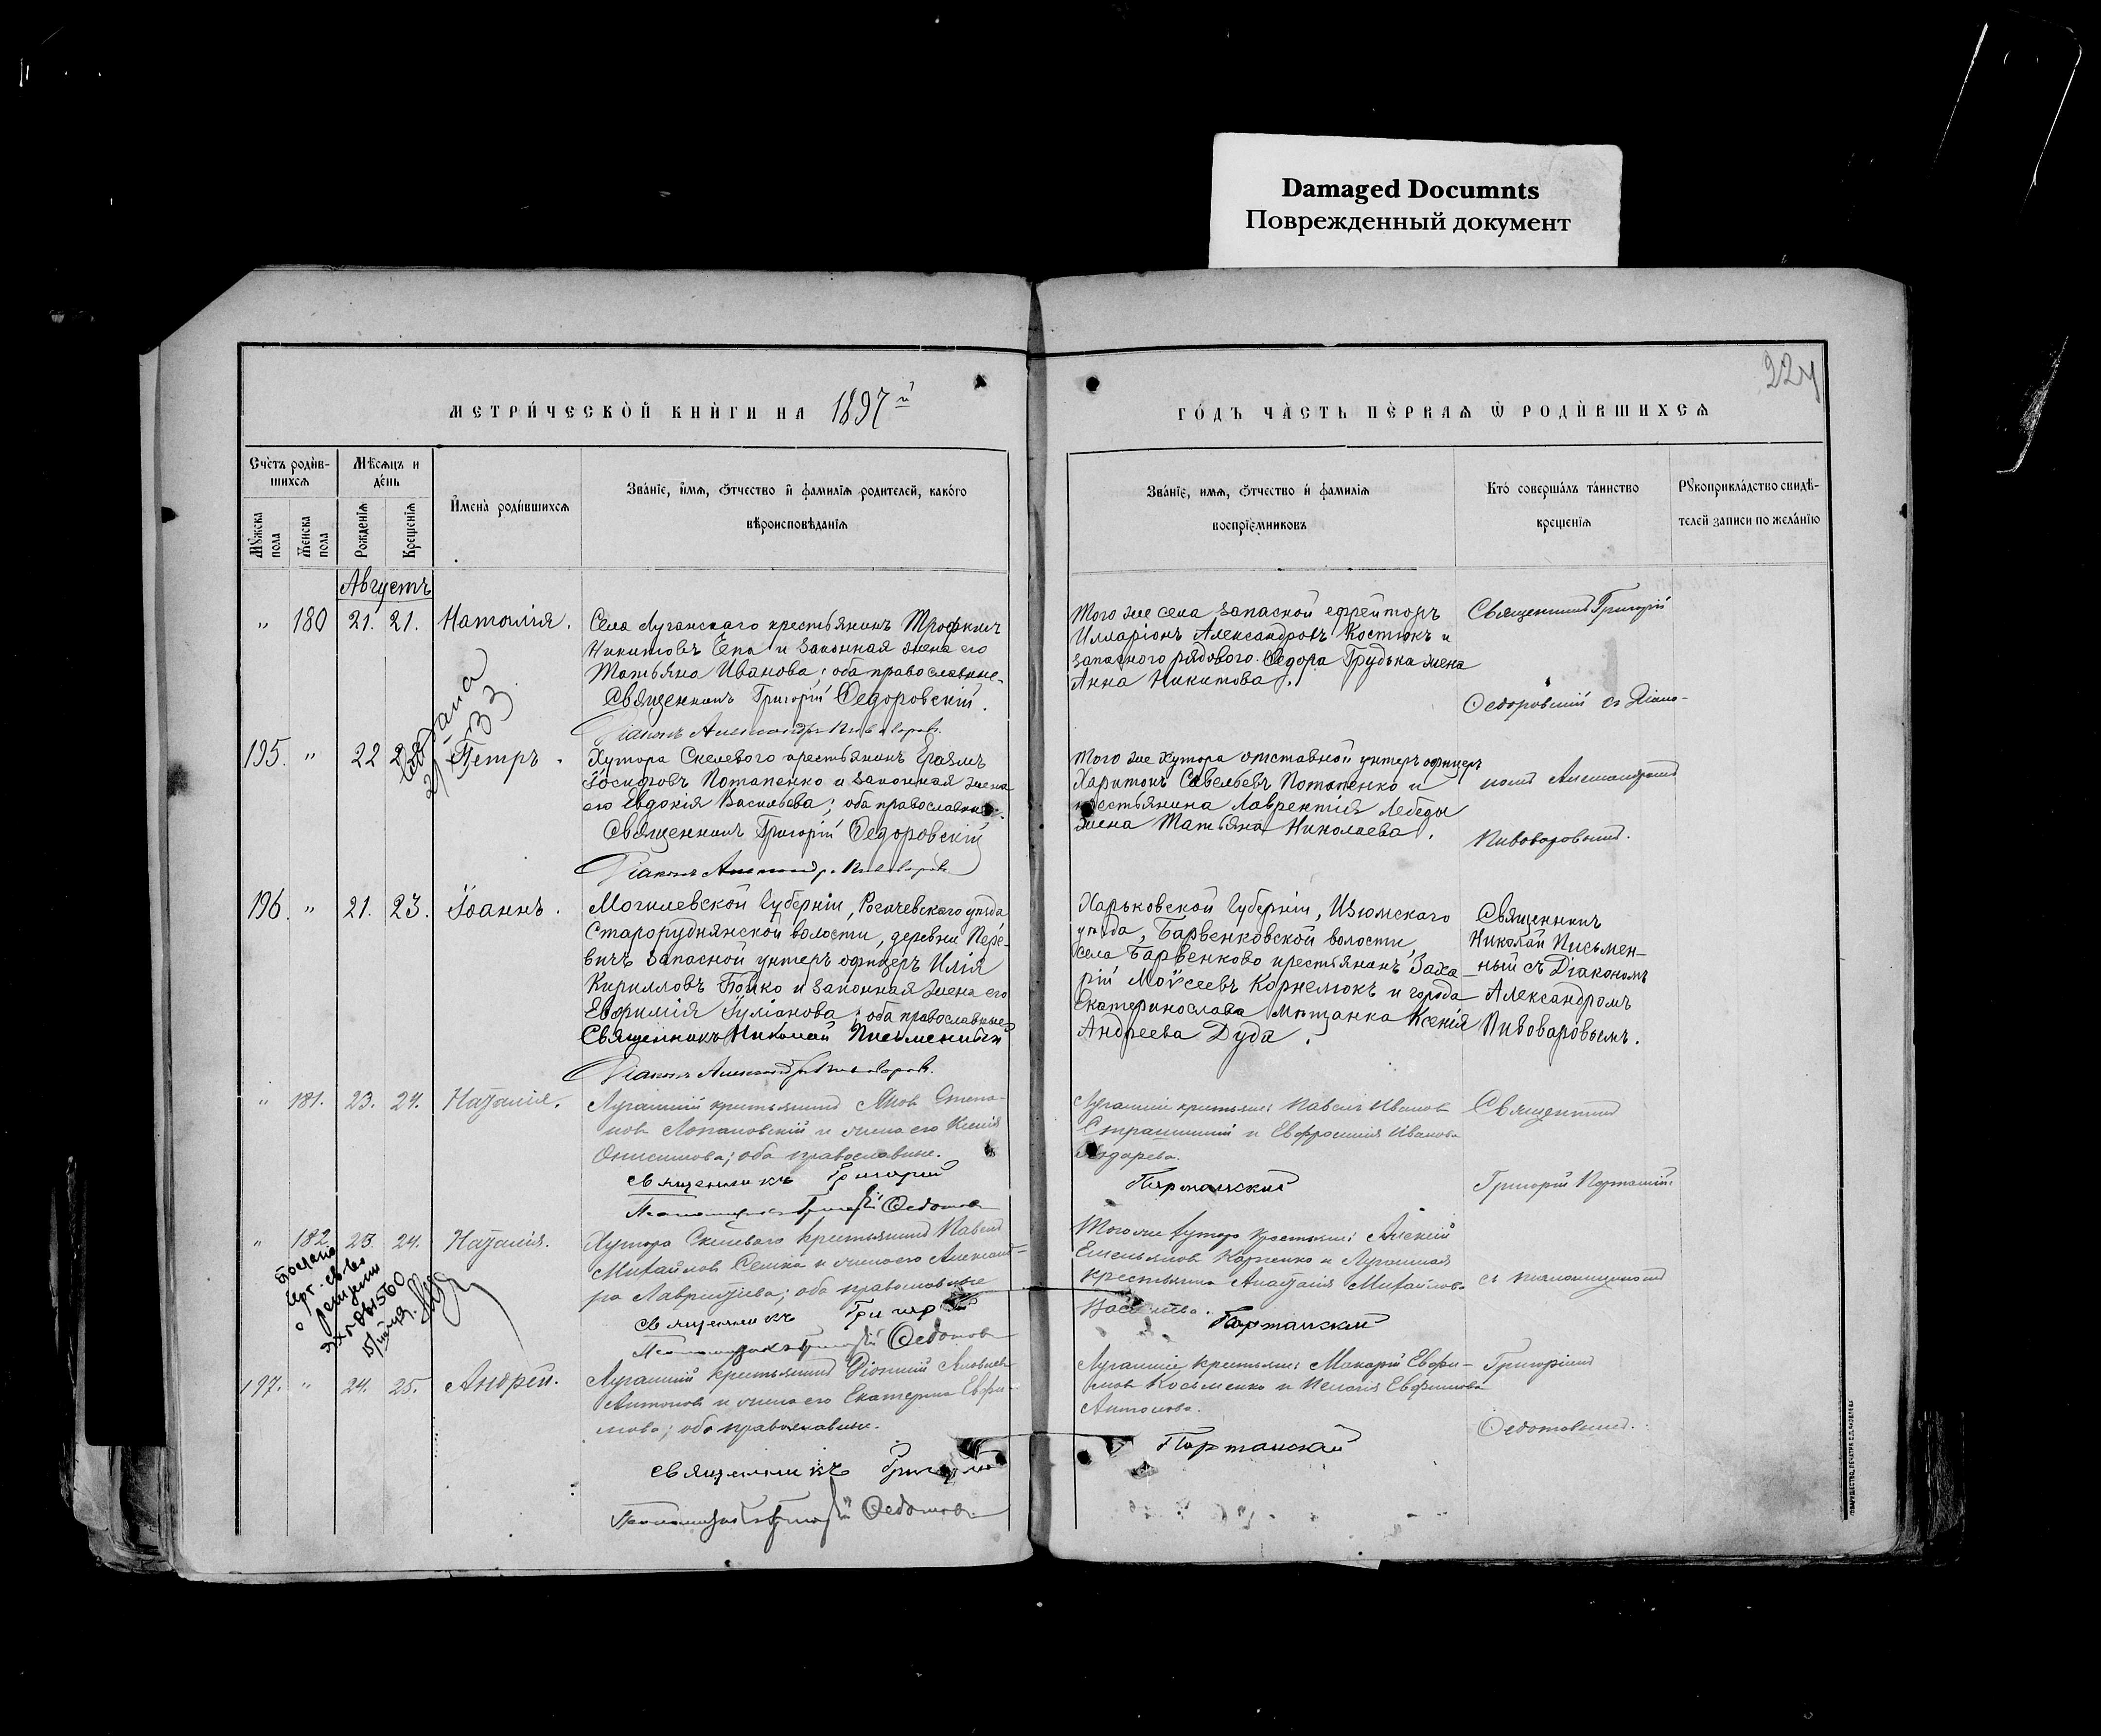 Damaged Documnts
Поврежденный документ
22
МЕТРИ́ЧЕСКО̀Й КНЍГИ НА 1897й
ГО́ДЪ ЧА̀СТЬ ПЀРВАѦ Ѿ РОДЍВШИХСѦ
Счетъ роди̂в-
шихсѧ
Мѣсѧцъ и
де́нь
Мꙋжска пола
Женска пола
Рожденїѧ
Крещенїѧ
И҆мена̀ роди́вшихсѧ
Зва́нїе, и҆́мѧ, ѻ҆́тчество и҆ фамилїѧ родителей, како́го
вѣроисповѣ́данїѧ
Зва́нїе, имѧ, ѻ҆́тчество и҆ фамилїѧ
воспрїе́мниковъ
Кто́ соверша́лъ та́инство
креще́нїѧ
Рꙋкоприкла́дство свидѣ́-
телей записи по жела́нїю
Августъ
" 180 21. 21. Наталія.
Села Луганскаго крестьянинъ Трофимъ
Никитовъ Чепа и законная жена его
Татьяна Иванова; оба православные.
Священникъ Григорій Ѳедоровскій.
Діаконъ Александръ Пивоваровъ.
Того же села запасной ефрейторъ
Илларіонъ Александровъ Костюкъ и
запасного рядового Ѳедора Грудька жена
Анна Никитова.
Священникъ Григорій
Ѳедоровскій съ Діако-
195. " 22 22 Петръ.
Хутора Скелевого крестьянинъ Герасимъ
Іосифовъ Потапенко и законная жена
его Евдокія Васильева; оба православные.
Священникъ Григорій Ѳедоровскій
Діаконъ Александръ Пивоваровъ
Того же хутора отставной унтеръ офицеръ
Харитонъ Савельевъ Потапенко и
крестьянина Лаврентія Лебеды
жена Татьяна Николаева.
номъ Александромъ
Пивоваровымъ.
196. " 21. 23. Іоаннъ.
Могилевской Губерніи, Рогачевскаго уѣзда
Старорудня­нской волости, деревни Пере-
вичъ запасной унтеръ офицеръ Илія
Кирилловъ Бойко и законная жена его
Евфимія Іуліанова; оба православные
Священникъ Николай Письменный
Діаконъ Александръ Пивоваровъ.
Харьковской Губерніи, Изюмскаго
уѣзда, Барвенковской волости,
села Барвенково крестьянинъ Заха-
рій Моѵсеевъ Корнелюкъ и города
Екатеринослава мѣщанка Ксенія
Андреева Дуда.
Священникъ
Николай Письмен-
ный съ Діакономъ
Александромъ
Пивоваровымъ.
" 181. 23. 24. Наталія.
Луганскій крестьянинъ Яковъ Степа-
новъ Лопановскій и жена его Ксенія
Онисимова; оба православные.
Священникъ Григорій
Псаломщикъ Григорій Ѳедотовъ
Луганскіе крестьяне: Павелъ Ивановъ
и Евфросинія Иванова
Портанскій
Священникъ
Григорій Портанскій
" 182. 23. 24. Наталія.
Хутора Скелеваго крестьянинъ Павелъ
Михайловъ и жена его Александ-
ра Лаврентіева; оба православные
Священникъ Григорій
Псаломщикъ Григорій Ѳедотовъ
Того же хутора крестьяне: Алексій
Емельяновъ Карпенко и Луганская
крестьянка Анастасія Михайлова
Портанскій
съ псаломщикомъ
197. " 24. 25. Андрей.
Луганскій крестьянинъ Діонисій Яковлевъ
Антоновъ и жена его Екатерина Евфи-
мова; оба православные.
Священникъ Григорій
Псаломщикъ Григорій Ѳедотовъ
Луганскіе крестьяне: Макарій Евфи-
мовъ Косьменко и Пелагія Евфимова
Антонова.
Портанскій
Григоріемъ
Ѳедотовымъ.